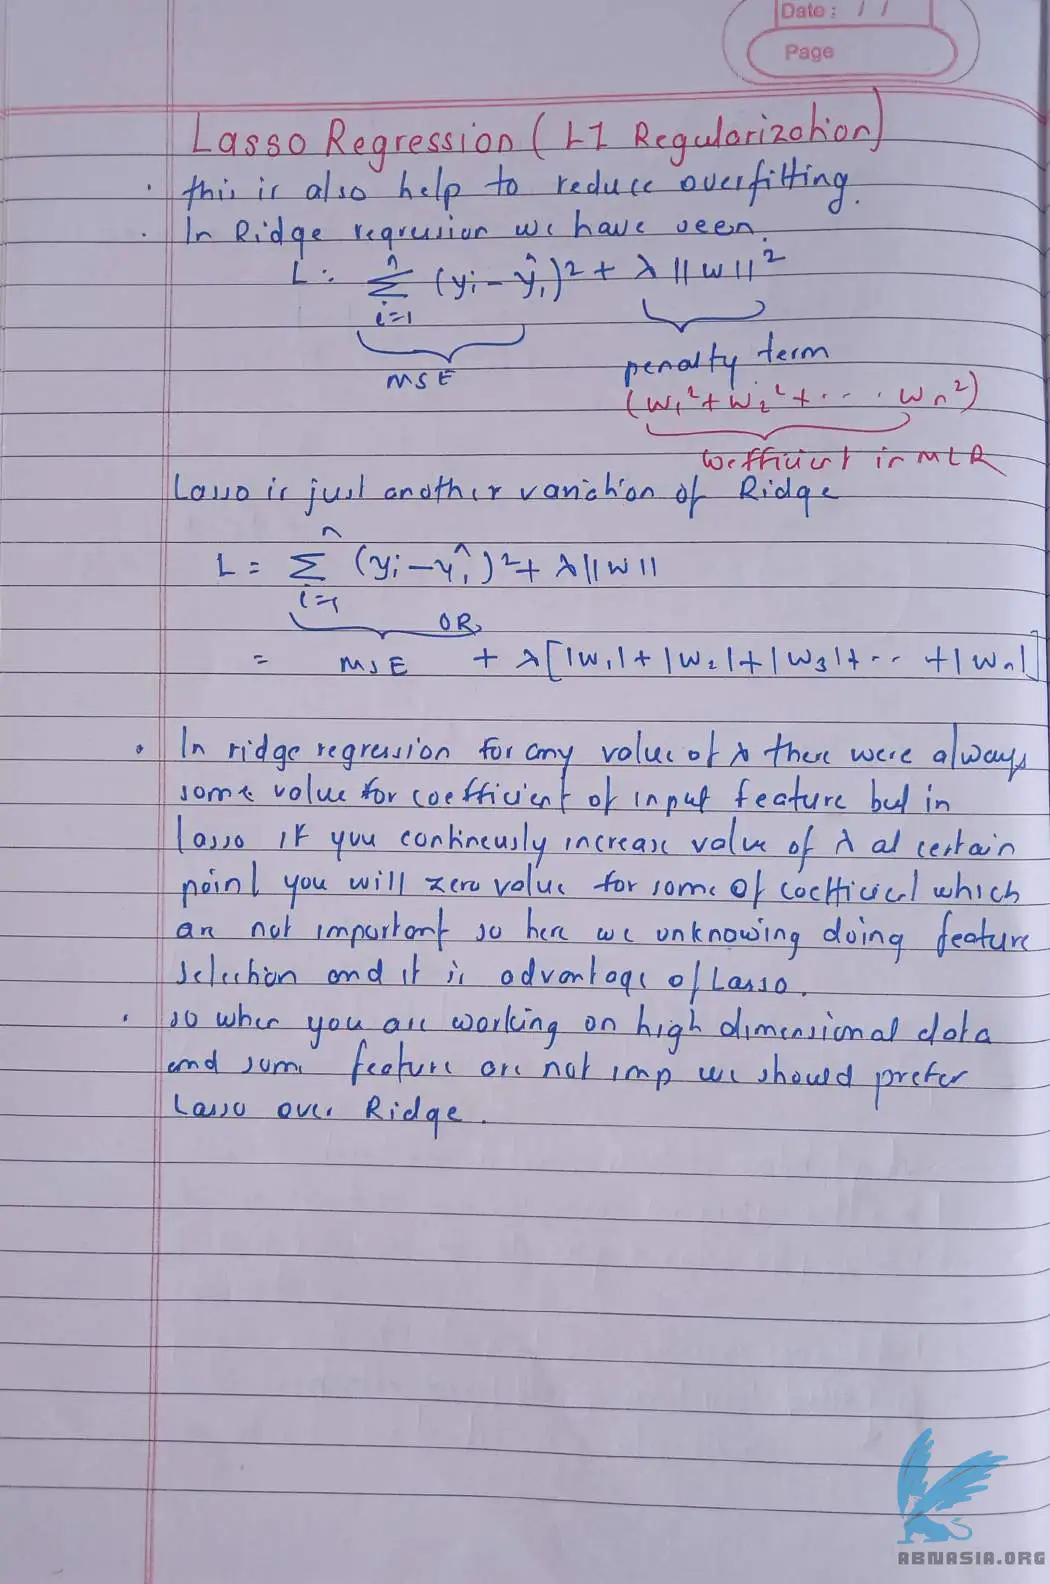 Date : / /
Page
Lasso Regression (L1 Regularization)
. this is also help to reduce overfitting.
. In Ridge regression we have seen.
L = n∑i=1 (yi - ŷi)² + λ ||w||²
MSE
penalty term
(w₁² + w₂² + . . . . wn²)
coefficient in MLR
Lasso is just another variation of Ridge
L = n∑i=1 (yi - ŷi)² + λ||w||
OR
= MSE + λ[|w₁| + |w₂| + |w₃| + .. + |wn|]
. In ridge regression for any value of λ there were always
some value for coefficient of input feature but in
lasso if you contineusly increase value of λ at certain
point you will zero value for some of coefficient which
are not important so here we unknowing doing feature
selection and it is advantage of Lasso.
. so when you are working on high dimensional data
and some feature are not imp we should prefer
Lasso over Ridge.
ABNASIA.ORG